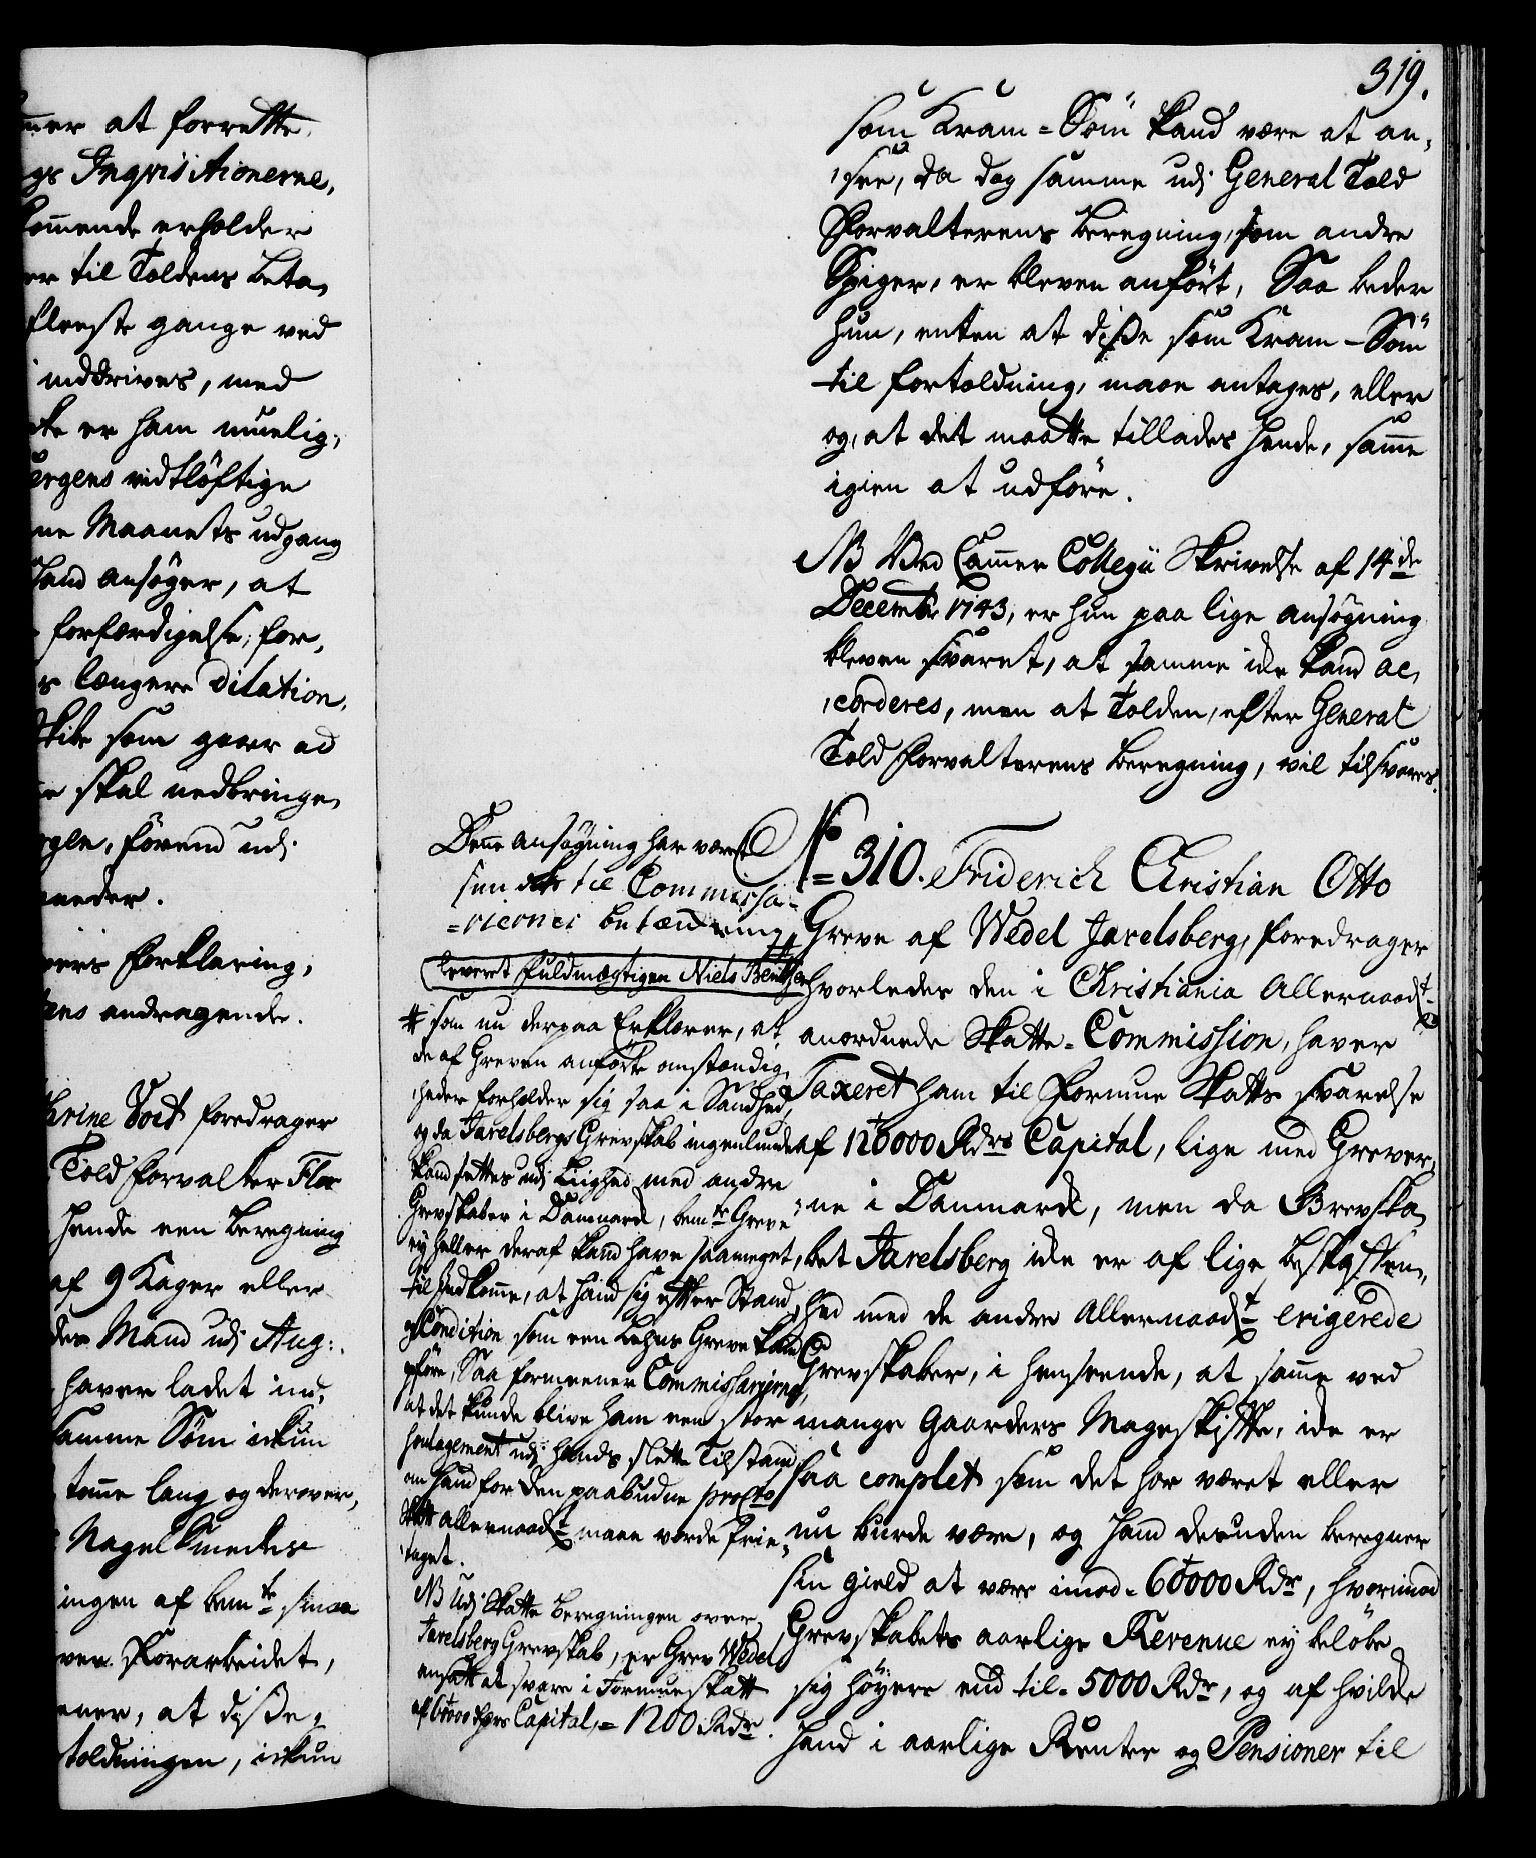 ner at forrette
gs Inqvisitionerne,
kom̄ende erholder
er til Toldens beta,
fleeste gange ved
inddrives, med
er ham muelig,
ergens vidtløftige
ne Maanets udgang
hand ansøger, at
forfærdigelse, for,
s længere Dilation,
som gaaer ad
skal nedbringe,
förend udj
neder.
Forklaring,
ens andragende.
rine Voit foredrager
Told Forvalter Flor
hende een Beregning
af 9 Kager eller
des Mand udj Aug:
haver ladet ind,
samme Söm ickun
tom̄e lang og derover,
Nagel Smedes
ingen af bemte smaa
Forarbeidet,
ener, at disse,
toldningen, ickun
319.
som Kram=Söm kand være at an,
,see, da dog samme udj General Told
Forvalterens Beregning, som andre
Spiger, er bleven anfört, Saa beder
hun, enten at disse som Kram-Söm
til fortoldning, maae antages, eller
og, at det maatte tillades hende, sam̄e
igien at udföre.
NB Ved Cam̄er Collegii Skrivelse af 14de
Decembr 1743, er hun paa lige ansøgning
bleven svaret, at samme icke kand ac,
,corderes, men at Tolden, efter General
Told Forvalterens Beregning, vil tilsvares.
Den̄e Ansøgning har været
sendt til Commissa-
=riernes betænkning,
leveret Fuldmægtigen Niels Bentzen
# som nu derpaa Erklærer, at
de af Greven anförte omstændig,
,heder forholder sig saa i Sandhed,
og da Jarelsbergs Grevskab ingenlunde
kand settes udj Liighed med andre
Grevskaber i Danmark, bemte Greve
ey heller deraf kand have saameget,
til Indkom̄e, at hand sig efter Stand
og Condition som een Lehns Greve kand
opföre, Saa formeener Commissarierne,
at det kunde blive ham een stor
soulagement udj hands slette Tilstand,
om hand for den paabudne
Skatt allernaadt maae vorde frie,
taget.
NB Udj Skatte Beregningen over
Jarelsberg Grevskab, er Grev Wedel
ansatt at svare i Formueskatt
af Capital, = 1200 Rdr.
No 310. Friderich Christian Otto
Greve af Wedel Jarelsberg, foredrager
hvorledes den i Christiania Allernaadt
anordnede Skatte-Commission, haver
Taxeret ham til Formue Skatts svarelse
af 120000 Rdrs Capital, lige med Grever,
,ne i Danmark, men da Grevska,
bet Jarelsberg icke er af lige beskaffen,
hed med de andre Allernaadt erigerede
Grevskaber, i henseende, at sam̄e ved
mange Gaarders Mageskifte, icke er
saa complet som det har været eller
nu burde være, og hand desuden beregner
sin gield at være imod- 60000 Rdr, hvorimod
Grevskabets aarlige Revenue ey belöbe
sig höyere end til- 5000 Rdr, og af hvilcke
hand i aarlige Renter og Pensioner til